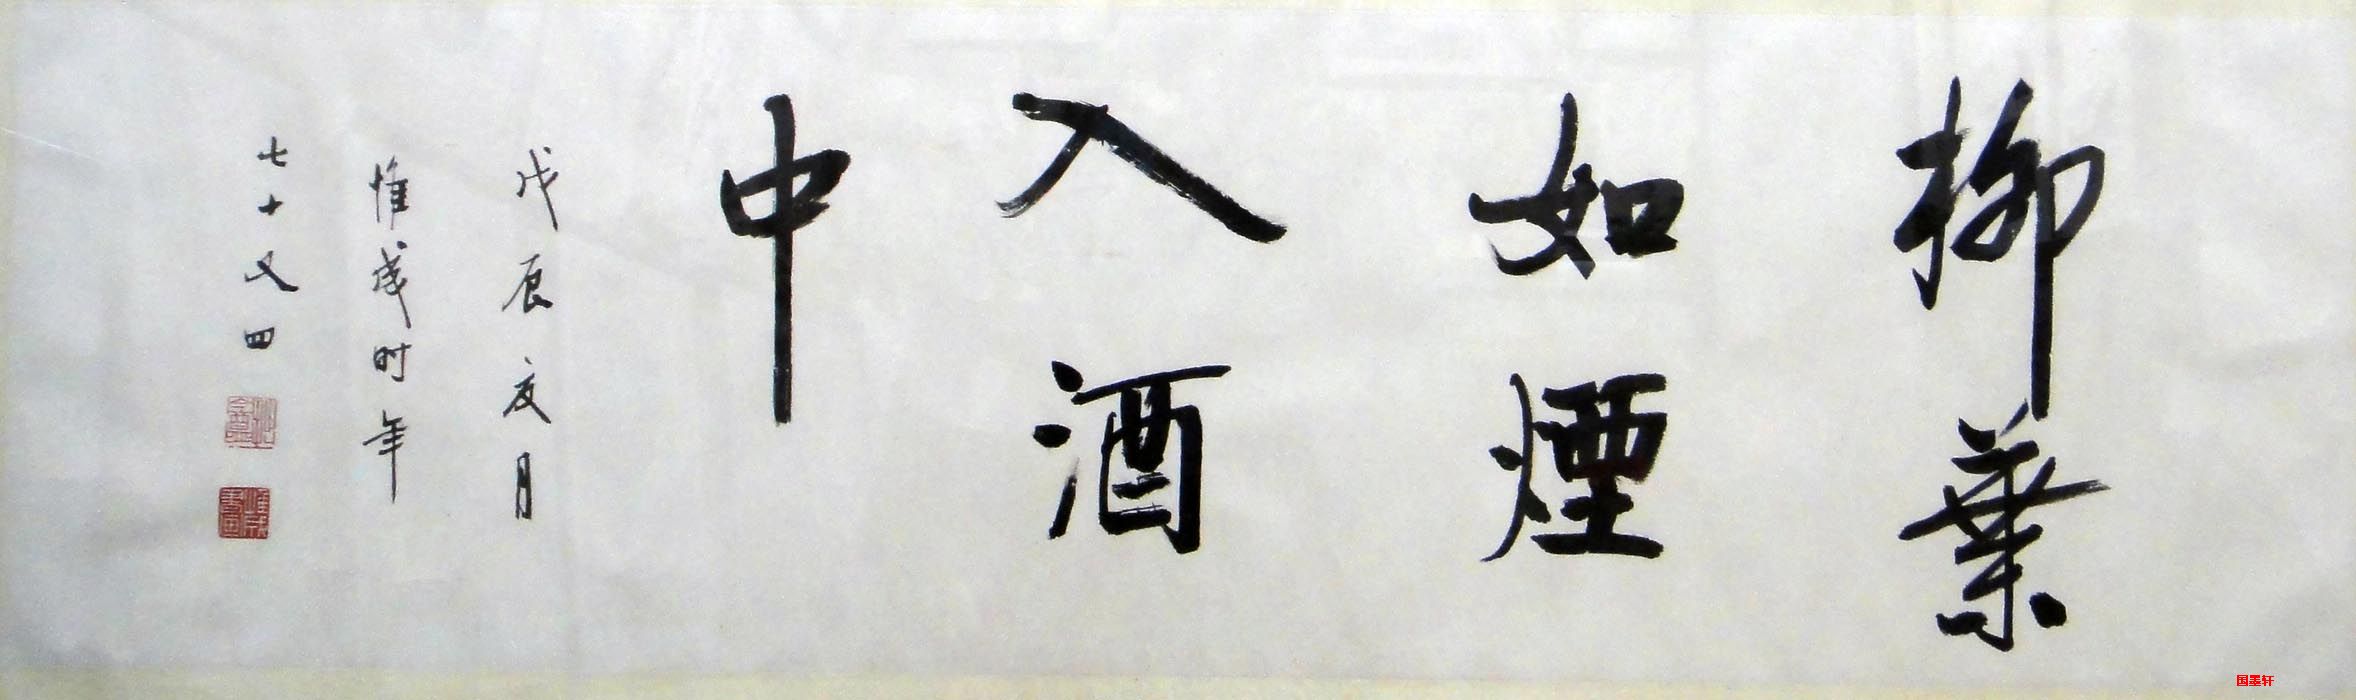 柳葉
如煙
入酒
中
戊辰夏月
惟成时年
七十又四
国墨轩